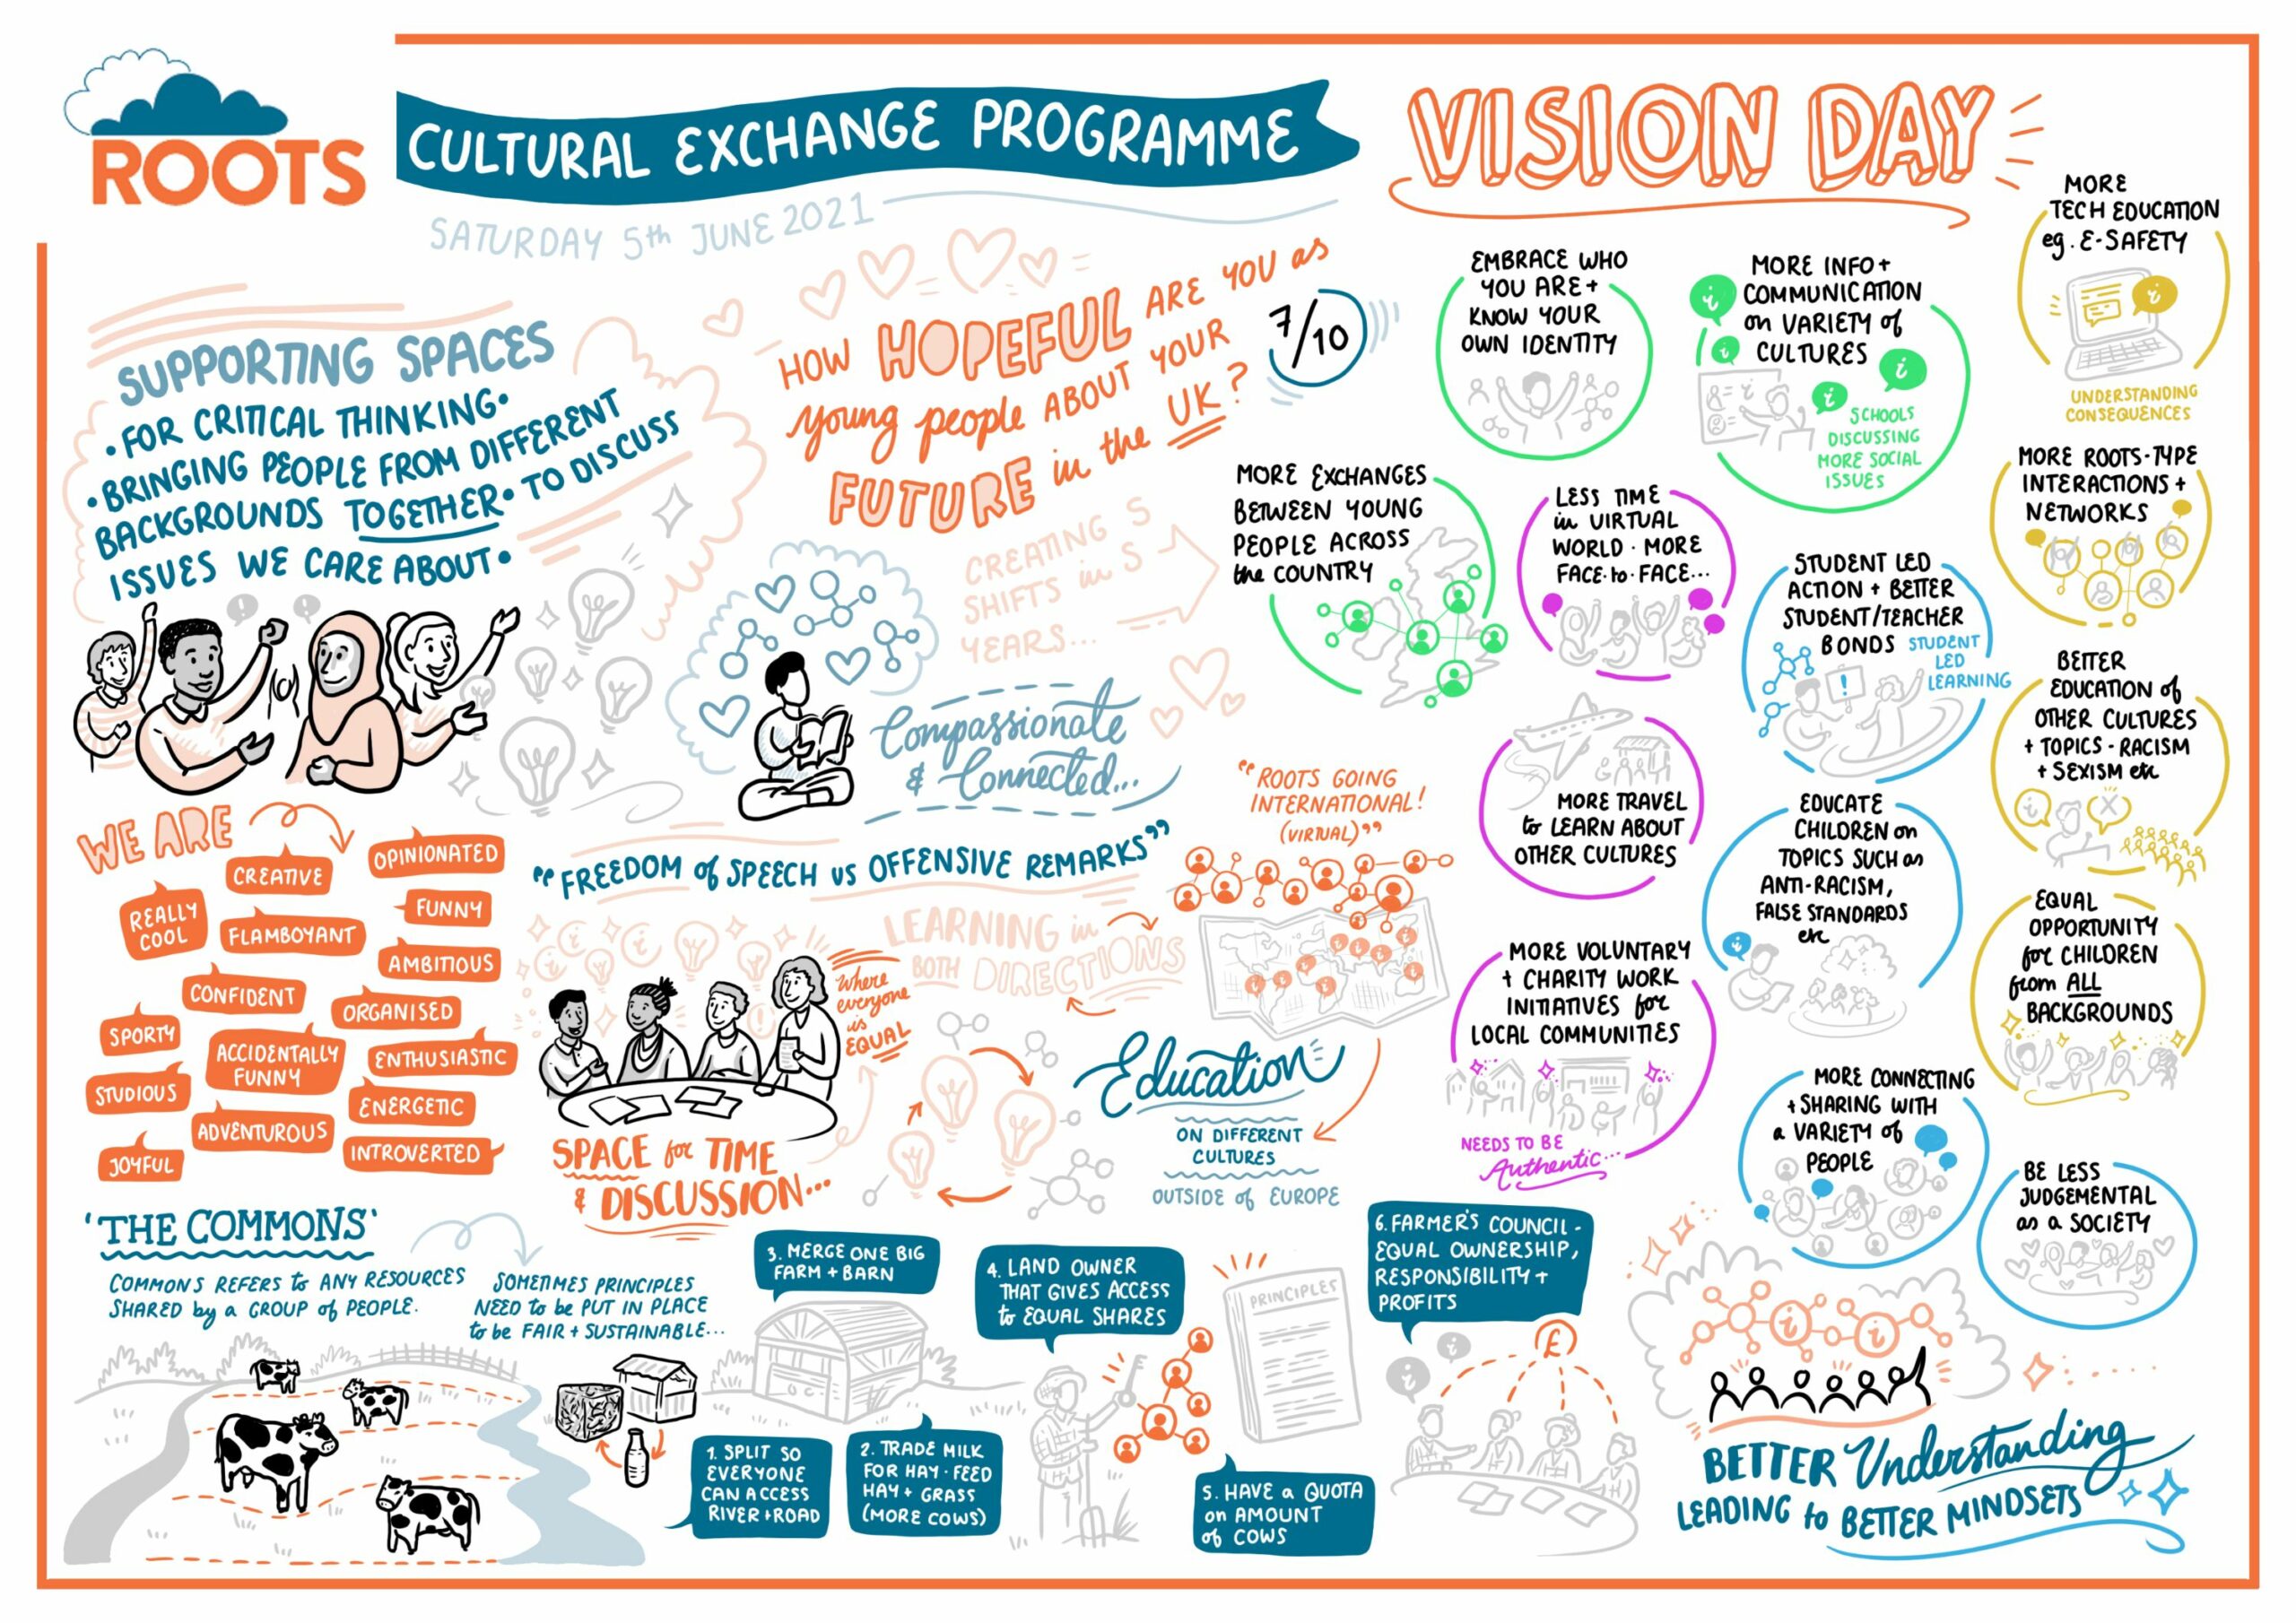 ROOTS
CULTURAL EXCHANGE PROGRAMME
SATURDAY 5th JUNE 2021
VISION DAY
SUPPORTING SPACES
• FOR CRITICAL THINKING •
• BRINGING PEOPLE FROM DIFFERENT
BACKGROUNDS TOGETHER • TO DISCUSS
ISSUES WE CARE ABOUT •
HOW HOPEFUL ARE YOU as
young people ABOUT YOUR
FUTURE in the UK?
7/10
CREATING 5
SHIFTS in 5
YEARS...
Compassionate
& Connected...
WE ARE
CREATIVE
OPINIONATED
REALLY
COOL
FUNNY
FLAMBOYANT
AMBITIOUS
CONFIDENT
ORGANISED
SPORTY
ACCIDENTALLY
FUNNY
ENTHUSIASTIC
STUDIOUS
ENERGETIC
ADVENTUROUS
JOYFUL
INTROVERTED
"FREEDOM of SPEECH vs OFFENSIVE REMARKS"
LEARNING in
BOTH DIRECTIONS
Where
everyone
is
EQUAL
SPACE for TIME
& DISCUSSION...
"ROOTS GOING
INTERNATIONAL!
(VIRTUAL)"
Education
ON DIFFERENT
CULTURES
OUTSIDE of EUROPE
'THE COMMONS'
COMMONS REFERS to ANY RESOURCES
SHARED by a GROUP of PEOPLE.
SOMETIMES PRINCIPLES
NEED to be PUT IN PLACE
to be FAIR + SUSTAINABLE...
1. SPLIT SO
EVERYONE
CAN ACCESS
RIVER + ROAD
2. TRADE MILK
FOR HAY • FEED
HAY + GRASS
(MORE COWS)
3. MERGE ONE BIG
FARM + BARN
4. LAND OWNER
THAT GIVES ACCESS
to EQUAL SHARES
PRINCIPLES
5. HAVE a QUOTA
on AMOUNT
of COWS
6. FARMER'S COUNCIL -
EQUAL OWNERSHIP,
RESPONSIBILITY +
PROFITS
£
EMBRACE WHO
YOU ARE +
KNOW YOUR
OWN IDENTITY
MORE INFO +
COMMUNICATION
on VARIETY of
CULTURES
SCHOOLS
DISCUSSING
MORE SOCIAL
ISSUES
MORE
TECH EDUCATION
eg. E-SAFETY
UNDERSTANDING
CONSEQUENCES
MORE EXCHANGES
BETWEEN YOUNG
PEOPLE ACROSS
the COUNTRY
LESS TIME
in VIRTUAL
WORLD • MORE
FACE • to • FACE...
MORE ROOTS-TYPE
INTERACTIONS +
NETWORKS
STUDENT LED
ACTION + BETTER
STUDENT/TEACHER
BONDS
STUDENT
LED
LEARNING
BETTER
EDUCATION of
OTHER CULTURES
+ TOPICS - RACISM
+ SEXISM etc
MORE TRAVEL
to LEARN ABOUT
OTHER CULTURES
EDUCATE
CHILDREN on
TOPICS SUCH as
ANTI-RACISM,
FALSE STANDARDS
etc
EQUAL
OPPORTUNITY
for CHILDREN
from ALL
BACKGROUNDS
MORE VOLUNTARY
+ CHARITY WORK
INITIATIVES for
LOCAL COMMUNITIES
NEEDS TO BE
Authentic...
MORE CONNECTING
+ SHARING WITH
a VARIETY of
PEOPLE
BE LESS
JUDGEMENTAL
as a SOCIETY
BETTER Understanding
LEADING to BETTER MINDSETS